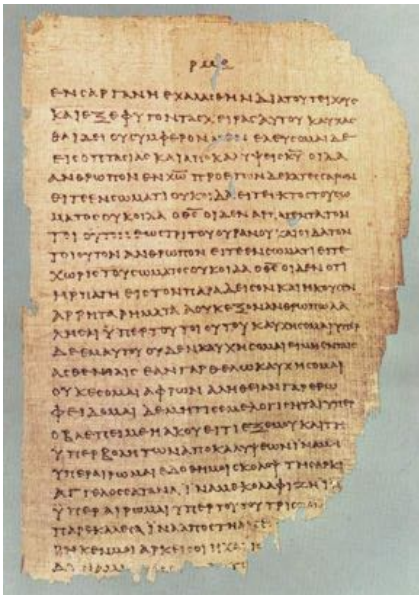 ρμε
ΕΝϹΑΡΓΑΝΗΕΧΑΛΑϹΘΗΝΔΙΑΤΟΥΤΕΙΧΟΥϹ
ΚΑΙΕΞΕΦΥΓΟΝΤΑϹΧΕΙΡΑϹΑΥΤΟΥΚΑΥΧΑϹ
ΘΑΙΔΕΙΟΥϹΥΜΦΕΡΟΝ ΕΛΕΥϹΟΜΑΙΔΕ
ΕΙϹΟΠΤΑϹΙΑϹΚΑΙΑΠΟΚΑΛΥΨΕΙϹΚ̅Υ̅ΟΙΔΑ
ΑΝΘΡΩΠΟΝΕΝΧ̅Ω̅ΠΡΟΕΤΩΝΔΕΚΑΤΕϹϹΑΡΩΝ
ΕΙΤΕΕΝϹΩΜΑΤΙΟΥΚΟΙΔΑΕΙΤΕΕΚΤΟϹΤΟΥϹΩ
ΜΑΤΟϹΟΥΚΟΙΔΑΟΘ̅Ϲ̅ΟΙΔΕΝΑΡΠΑΓΕΝΤΑΤΟΝ
ΤΟΙΟΥΤΟΝΕΩϹΤΡΙΤΟΥΟΥΡΑΝΟΥΚΑΙΟΙΔΑΤΟΝ
ΤΟΙΟΥΤΟΝΑΝΘΡΩΠΟΝΕΙΤΕΕΝϹΩΜΑΤΙΕΙΤΕ
ΧΩΡΙϹΤΟΥϹΩΜΑΤΟϹΟΥΚΟΙΔΑΟΘ̅Ϲ̅ΟΙΔΕΝΟΤΙ
ΗΡΠΑΓΗΕΙϹΤΟΝΠΑΡΑΔΕΙϹΟΝΚΑΙΗΚΟΥϹΕΝ
ΑΡΡΗΤΑΡΗΜΑΤΑΑΟΥΚΕΞΟΝΑΝΘΡΩΠΩΛΑ
ΛΗϹΑΙΫΠΕΡΤΟΥΤΟΙΟΥΤΟΥΚΑΥΧΗϹΟΜΑΙΥΠΕΡ
ΔΕΕΜΑΥΤΟΥΟΥΔΕΝΚΑΥΧΗϹΟΜΑΙΕΙΜΗΕΝΤΑΙϹ
ΑϹΘΕΝΕΙΑΙϹΕΑΝΓΑΡΘΕΛΩΚΑΥΧΗϹΟΜΑΙ
ΟΥΚΕϹΟΜΑΙΑΦΡΩΝΑΛΗΘΕΙΑΝΓΑΡΕΡΩ
ΦΕΙΔΟΜΑΙΔΕΜΗΤΙϹΕΜΕΛΟΓΙϹΗΤΑΙΥΠΕΡ
ΟΒΛΕΠΕΙΜΕΗΑΚΟΥΕΙΤΙΕΞΕΜΟΥΚΑΙΤΗ
ΫΠΕΡΒΟΛΗΤΩΝΑΠΟΚΑΛΥΨΕΩΝΙΝΑΜΗ
ΥΠΕΡΑΙΡΩΜΑΙΕΔΟΘΗΜΟΙϹΚΟΛΟΨΤΗϹΑΡΚΙ
ΑΓΓΕΛΟϹϹΑΤΑΝΑΪΝΑΜΕΚΟΛΑΦΙΖΗΙ
ΫΠΕΡΑΙΡΩΜΑΙΥΠΕΡΤΟΥΤΟΥΤΡΙϹ
ΠΑΡΕΚΑΛΕϹΑΪΝΑΑΠΟϹΤΗ
ΡΗΚΕΝΜΟΙΑΡΚΕΙϹΟΙΗΧΑΡΙ
ΔΥΝΑΜ